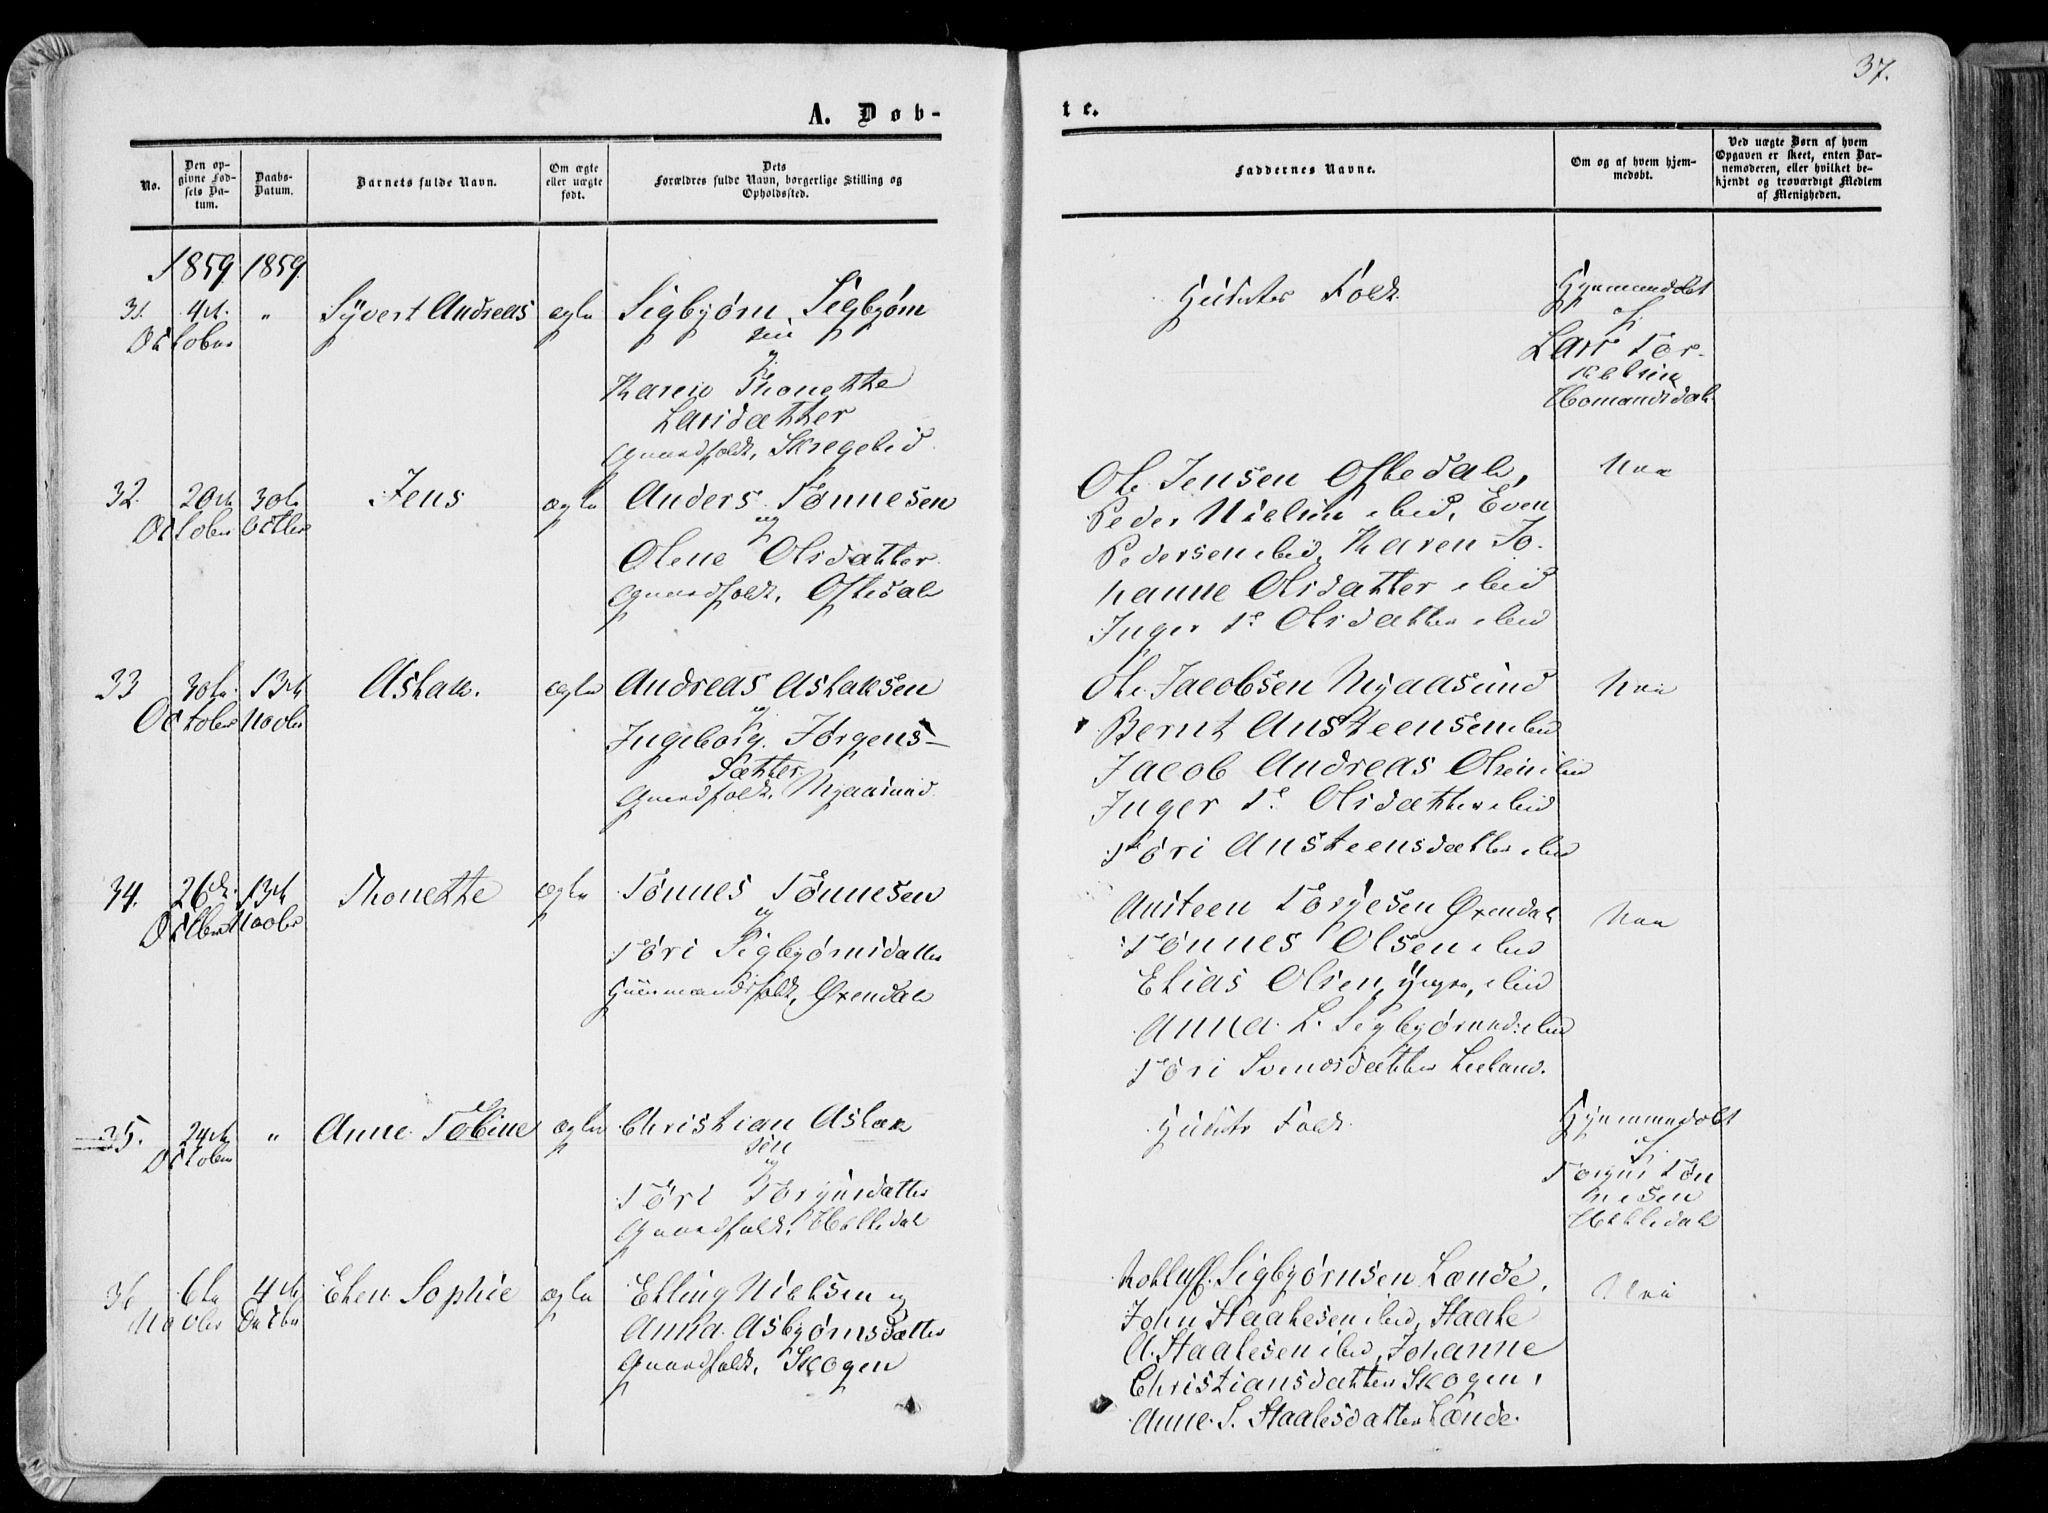 37.
A. Døb-
te.
No.
Den op-
givne Fød-
sels Da-
tum.
Daabs-
Datum.
Barnets fulde Navn.
Om ægte
eller uægte
født.
Dets
Forældres fulde Navn, borgerlige Stilling og
Opholdssted.
Faddernes Navne.
Om og af hvem hjem-
medøbt.
Ved uægte Børn af hvem
Opgaven er skeet, enten Bar-
nemoderen, eller hvilket be-
kjendt og troværdigt Medlem
af Menigheden.
1859 1859
31. 4de " Syvert Andreas ægte Sigbjørn Sigbjørn
October sen
og
Karen Thonette
Larsdatter
Gaardfolk, Skregelid
Folk.
Hjemmedøbt
af
Lars Tor-
kelsen
Homandsdal
32. 20de 30te Jens ægte Anders Tønnesen
October Octbr og
Olene Olsdatter
Gaardfolk, Oftedal
Ole Jensen Oftedal,
Peder Nielsen ibid, Even
Pedersen ibid, Karen Jo-
hanne Olsdatter ibid
Inger Olsdatter ibid
Nei
33 30te 13de Aslak. ægte Andreas Aslaksen
October Novbr og
Ingeborg Jørgens-
datter
Gaardfolk, Mjaasund
Ole Jacobsen Mjaasund
Bernt Austeensen ibid
Jacob Andreas Olsen ibid
Inger Olsdatter ibid
Tøri Austeensdatter ibid
Nei
34. 26de 13de Thonette ægte Tønnes Tønnesen
Octbr Novbr og
Tøri Sigbjørnsdatter
Huusmandsfolk, Øxendal
Austeen Torgesen Øxendal
Tønnes Olsen ibid
Elias Olsen, yngre, ibid
Anna L. Sigbjørnsd: ibid
Tøri Svendsdatter Leeland.
Nei
35. 24de " Anne Tobine ægte Christian Aslak
October sen
og
Tøri Torgersdatter
Gaardfolk, Helledal
Folk.
Hjemmedøbt
af
Torger Tøn
nesen
Helledal
36 6te 4de Elen Sophie ægte Elling Nielsen og
Novbr Decbr Anna Asbjørnsdatter
Gaardfolk, Skogen
Rolluf Sigbjørnsen Lende,
John Staalesen ibid, Staale
A. Staalesen ibid, Johanne
Christiansdatter Skogen,
Anne S. Staalesdatter Lende.
Nei